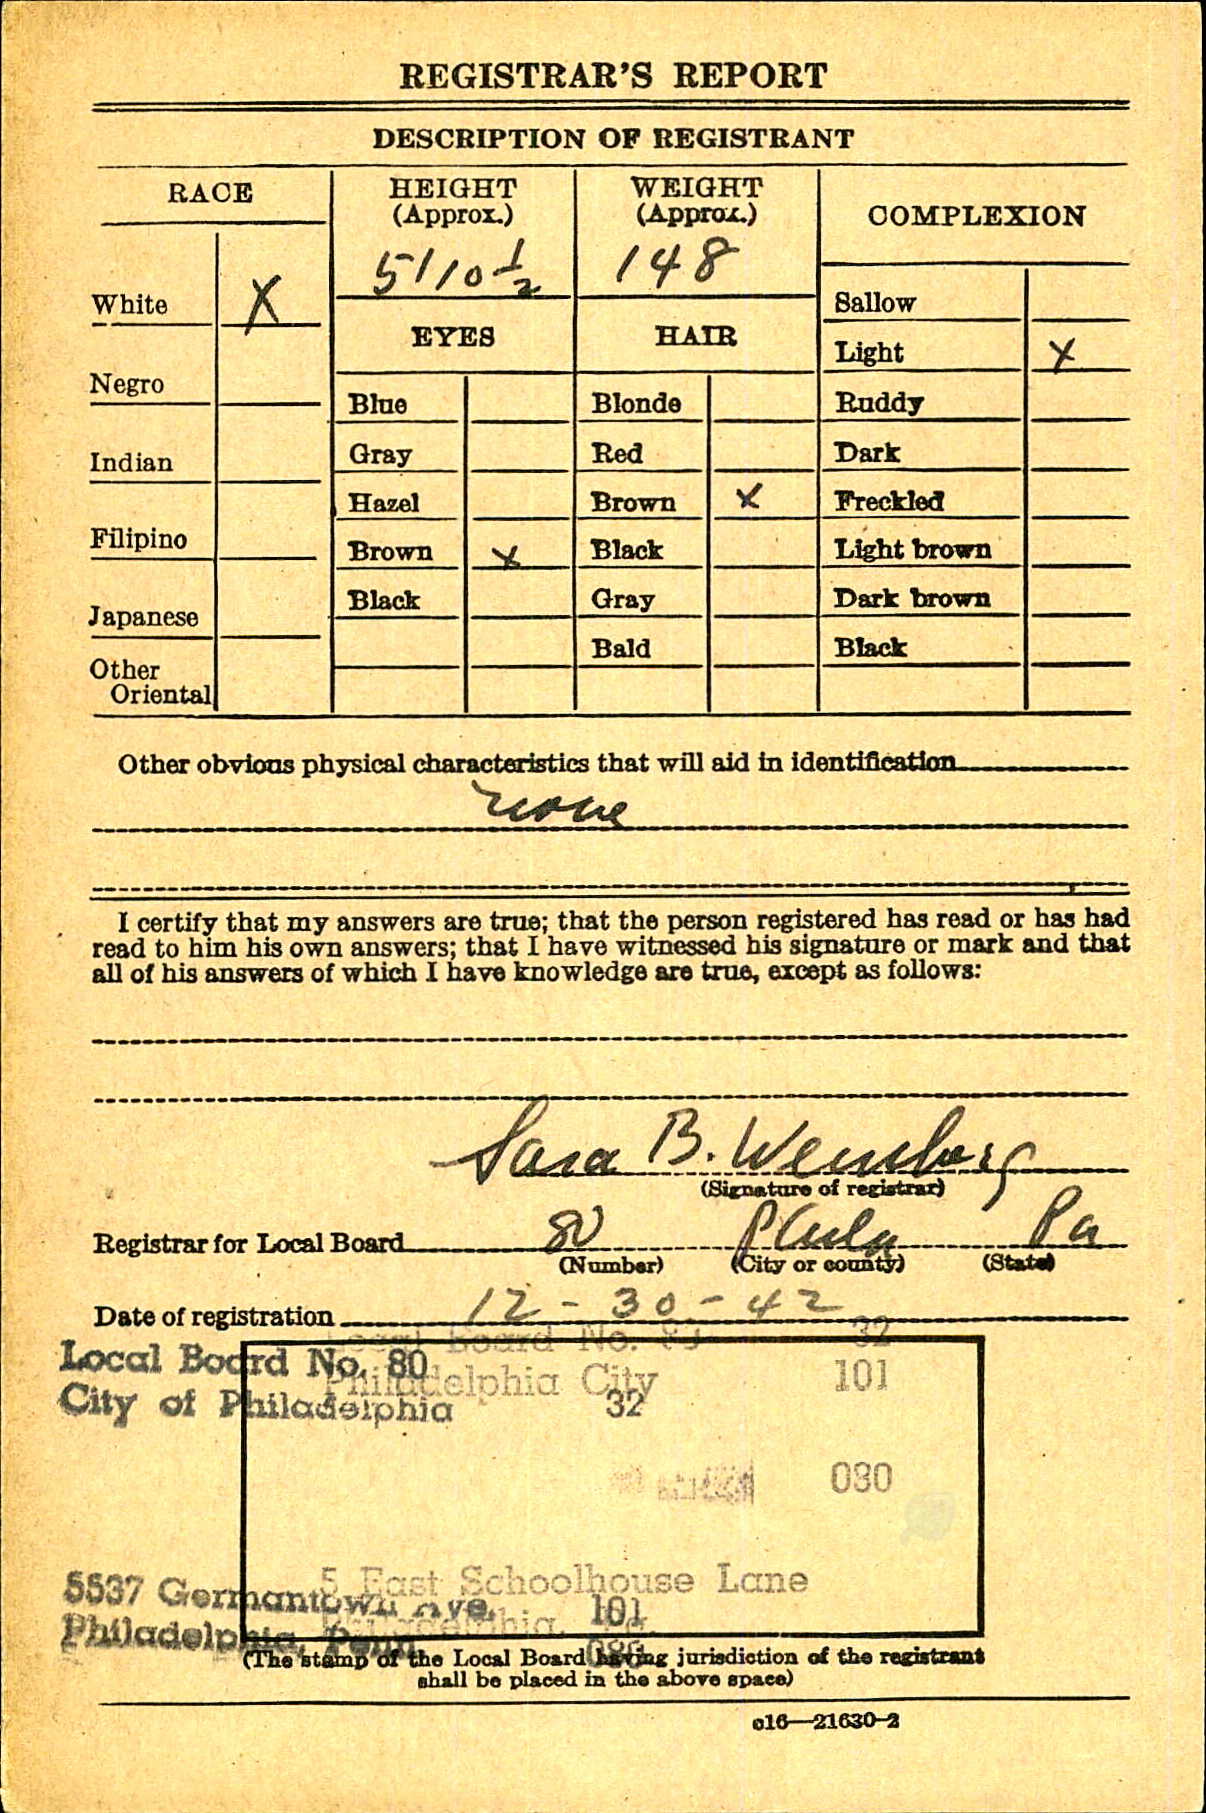 REGISTRAR'S REPORT
DESCRIPTION OF REGISTRANT
RACE
White X
Negro
Indian
Filipino
Japanese
Other
Oriental
HEIGHT
(Approx.)
5/10 1/2
WEIGHT
(Approx.)
148
EYES
Blue
Gray
Hazel
Brown X
Black
HAIR
Blonde
Red
Brown X
Black
Gray
Bald
COMPLEXION
Sallow
Light X
Ruddy
Dark
Freckled
Light brown
Dark brown
Black
Other obvious physical characteristics that will aid in identification
none
I certify that my answers are true; that the person registered has read or has had
read to him his own answers; that I have witnessed his signature or mark and that
all of his answers of which I have knowledge are true, except as follows:
Sara B. Weinberg
(Signature of registrar)
Registrar for Local Board 80 Phila Pa
(Number) (City or county) (State)
Date of registration 12-30-42
Local Board No. 32
Local Board No. 80
Philadelphia City 101
City of Philadelphia 32
080
5 East Schoolhouse Lane
5537 Germantown Ave. 101
Philadelphia, Pa.
Philadelphia, Penn.
(The stamp of the Local Board having jurisdiction of the registrant
shall be placed in the above space)
c16—21630-2